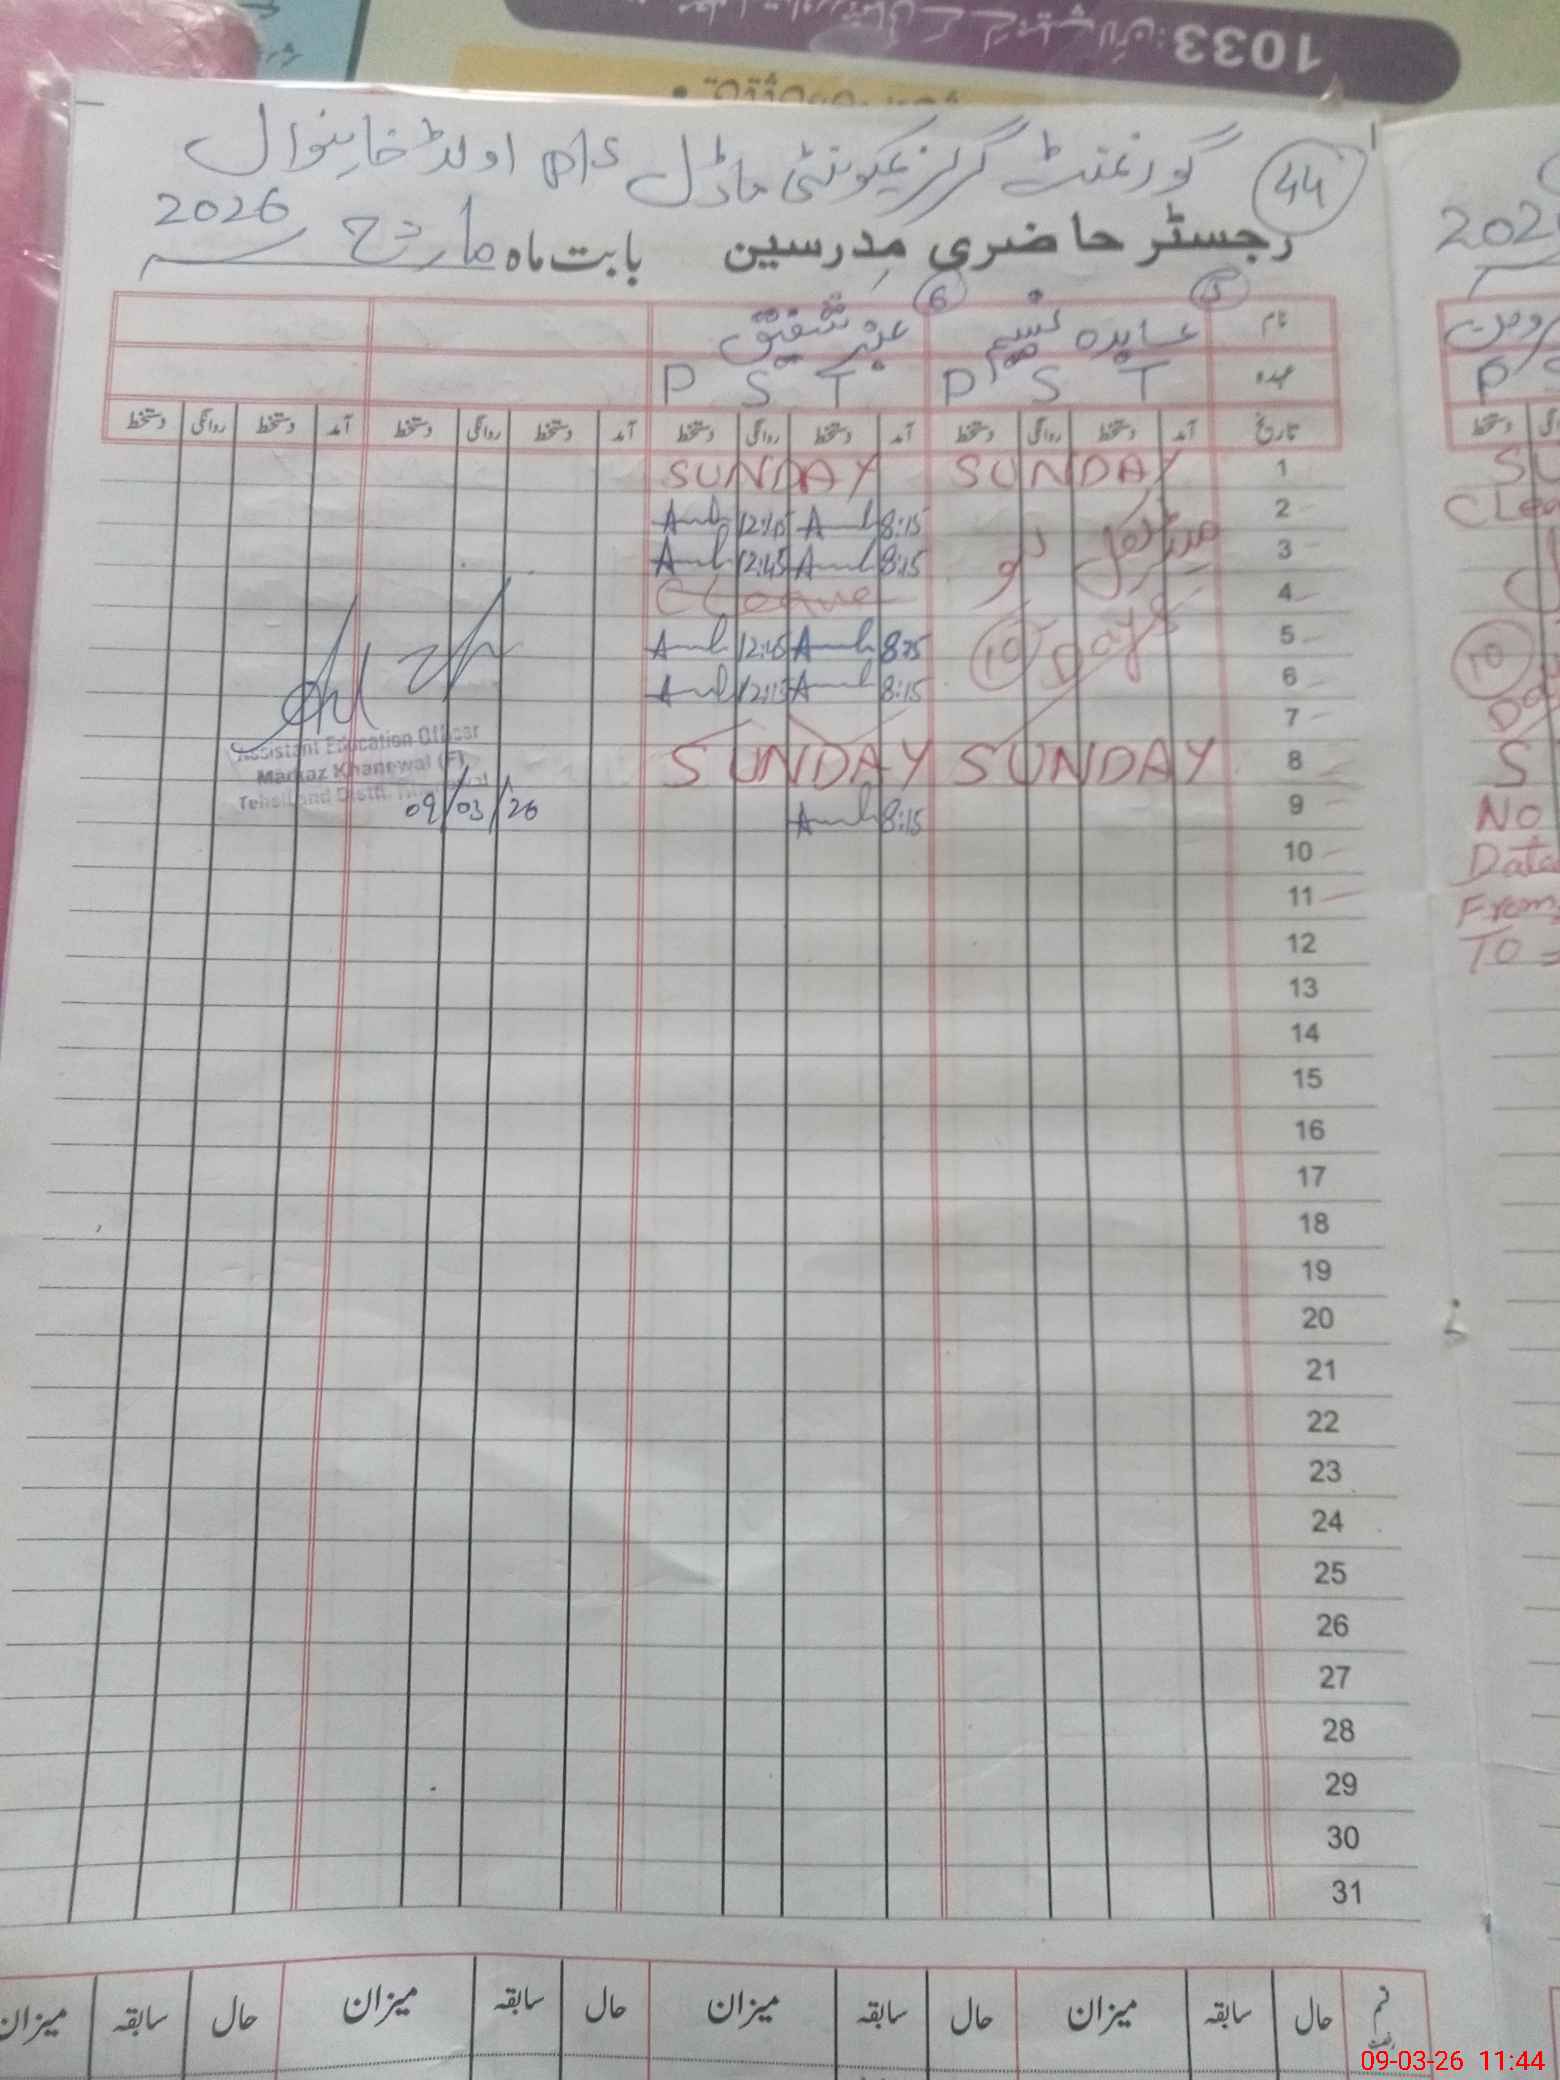 1033
44 گورنمنٹ گرلز کمیونٹی ماڈل p/s اولڈ خانیوال
رجسٹر حاضری مدرسین بابت ماہ مارچ 2026
5 6
نام عابدہ نسیم عنبر شفیق
عہدہ P S T P S T
تاریخ آمد دستخط روانگی دستخط آمد دستخط روانگی دستخط آمد دستخط روانگی دستخط آمد دستخط روانگی دستخط
1 SUNDAY SUNDAY
2 8:15 12:45
3 میڈیکل لیو 8:15 12:45
4 C Leave
5 10 Days 8:15 12:45
6 8:15 12:15
7
8 SUNDAY SUNDAY
9 8:15
10
11
12
13
14
15
16
17
18
19
20
21
22
23
24
25
26
27
28
29
30
31
Assistant Education Officer
Markaz Khanewal (F)
Tehsil and Distt.
09/03/26
حال سابقہ میزان حال سابقہ میزان حال سابقہ میزان حال سابقہ میزان
P
No
Date
From
To =
10
09-03-26 11:44